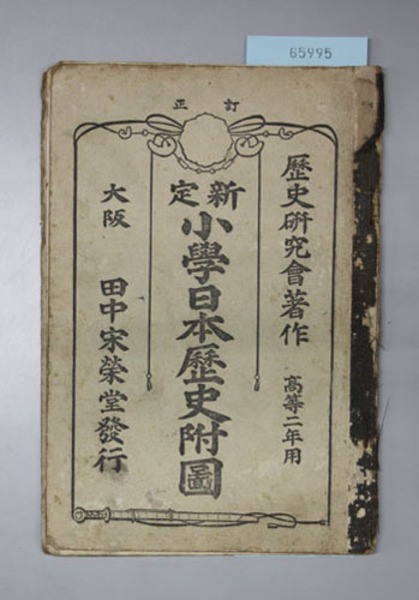 65995
訂正
歷史硏究會著作
高等二年用
新定
小學日本歷史附圖
大阪
田中宋榮堂發行